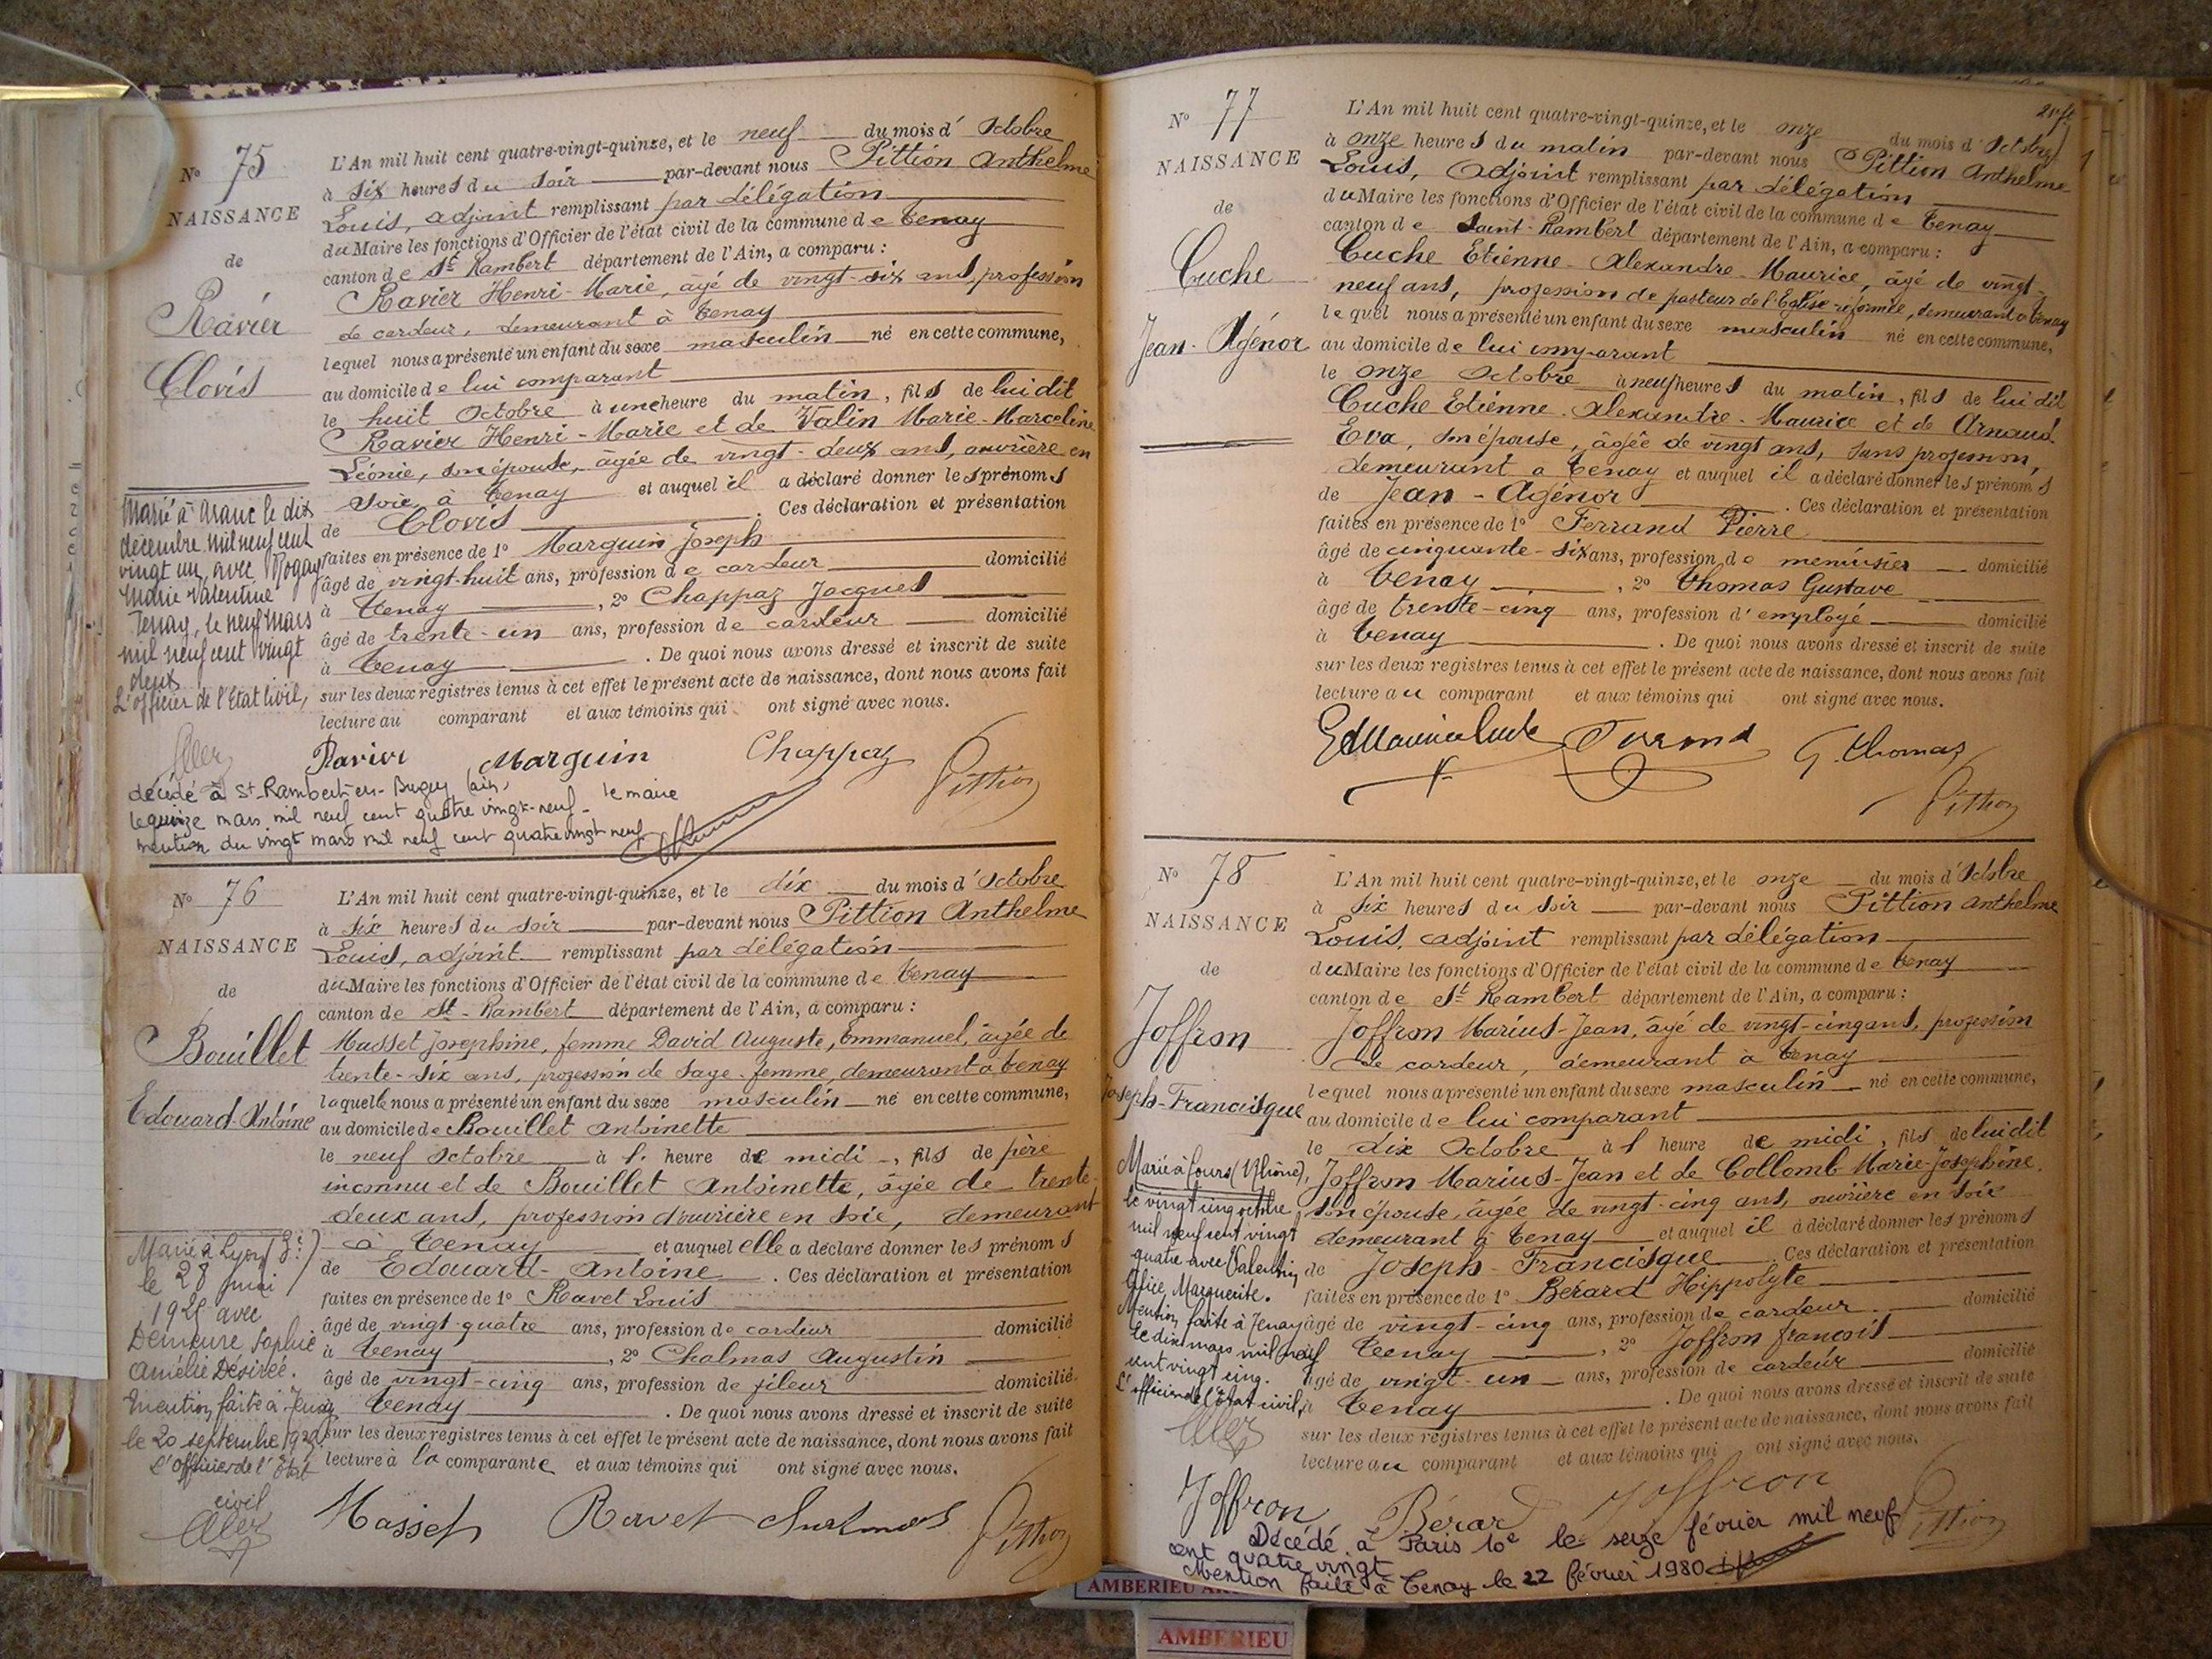 N° 75
NAISSANCE
de
Ravier
Clovis
L'An mil huit cent quatre-vingt-quinze, et le neuf du mois d'Octobre
à six heures du soir par-devant nous Pittion Anthelme
Louis, adjoint remplissant par délégation
du Maire les fonctions d'Officier de l'état civil de la commune de Tenay
canton de St Rambert département de l'Ain, a comparu :
Ravier Henri-Marie, âgé de vingt-six ans, profession
de cardeur, demeurant à Tenay
lequel nous a présenté un enfant du sexe masculin né en cette commune,
au domicile de lui comparant
le huit Octobre à une heure du matin, fils de lui dit
Ravier Henri-Marie et de Valin Marie-Marceline
Léonie, son épouse, âgée de vingt-deux ans, ouvrière en
soie, à Tenay et auquel il a déclaré donner les prénoms
de Clovis. Ces déclaration et présentation
faites en présence de 1° Marguin Joseph
âgé de vingt-huit ans, profession de cardeur domicilié
à Tenay, 2° Chappaz Jacques
âgé de trente-un ans, profession de cardeur domicilié
à Tenay. De quoi nous avons dressé et inscrit de suite
sur les deux registres tenus à cet effet le présent acte de naissance, dont nous avons fait
lecture au comparant et aux témoins qui ont signé avec nous.
Marié à Aranc le dix
décembre mil neuf cent
vingt un, avec Rogay
Marie Valentine
Tenay, le neuf mars
mil neuf cent vingt
deux
L'officier de l'Etat civil,
Ravier Marguin Chappaz Pittion
décédé à St-Rambert-en-Bugey (ain)
le quinze mars mil neuf cent quatre vingt-neuf - le maire
mention du vingt mars mil neuf cent quatre vingt neuf
N° 76
NAISSANCE
de
Bouillet
Edouard-Antoine
L'An mil huit cent quatre-vingt-quinze, et le dix du mois d'Octobre
à six heures du soir par-devant nous Pittion Anthelme
Louis, adjoint remplissant par délégation
du Maire les fonctions d'Officier de l'état civil de la commune de Tenay
canton de St-Rambert département de l'Ain, a comparu :
Masset Josephine, femme David Auguste, Emmanuel, âgée de
trente-six ans, profession de sage-femme, demeurant à Tenay
laquelle nous a présenté un enfant du sexe masculin né en cette commune,
au domicile de Bouillet Antoinette
le neuf Octobre à 1. heure de midi, fils de père
inconnu et de Bouillet Antoinette, âgée de trente-
deux ans, profession d'ouvrière en soie, demeurant
à Tenay et auquel elle a déclaré donner les prénoms
de Edouard-Antoine. Ces déclaration et présentation
faites en présence de 1° Ravet Louis
âgé de vingt-quatre ans, profession de cardeur domicilié
à Tenay, 2° Chalmas Augustin
âgé de vingt-cinq ans, profession de fileur domicilié
Tenay. De quoi nous avons dressé et inscrit de suite
sur les deux registres tenus à cet effet le présent acte de naissance, dont nous avons fait
lecture à la comparante et aux témoins qui ont signé avec nous.
Marié à Lyon (3e)
le 28 mai
avec
Demeure Sophie
Amélie Désirée.
Mention faite à Tenay
le 20 septembre
l'Officier de l'Etat
civil
Masset Ravet Chalmas Pittion
N° 77
NAISSANCE
de
Cuche
Jean-Agénor
L'An mil huit cent quatre-vingt-quinze, et le onze du mois d'Octobre
à onze heures du matin par-devant nous Pittion Anthelme
Louis, adjoint remplissant par délégation
du Maire les fonctions d'Officier de l'état civil de la commune de Tenay
canton de Saint-Rambert département de l'Ain, a comparu :
Cuche Etienne-Alexandre-Maurice, âgé de vingt-
neuf ans, profession de pasteur de l'Eglise réformée, demeurant à Tenay
lequel nous a présenté un enfant du sexe masculin né en cette commune,
au domicile de lui comparant
le onze Octobre à neuf heures du matin, fils de lui dit
Cuche Etienne-Alexandre-Maurice et de Arnaud
Eva, son épouse, âgée de vingt ans, sans profession,
demeurant à Tenay et auquel il a déclaré donner les prénoms
de Jean-Agénor. Ces déclaration et présentation
faites en présence de 1° Ferrand Pierre
âgé de cinquante-six ans, profession de menuisier domicilié
à Tenay, 2° Thomas Gustave
âgé de trente-cinq ans, profession d'employé domicilié
à Tenay. De quoi nous avons dressé et inscrit de suite
sur les deux registres tenus à cet effet le présent acte de naissance, dont nous avons fait
lecture au comparant et aux témoins qui ont signé avec nous.
G. Thomas
Pittion
N° 78
NAISSANCE
de
Joffron
Joseph-Francisque
L'An mil huit cent quatre-vingt-quinze, et le onze du mois d'Octobre
à six heures du soir par-devant nous Pittion Anthelme
Louis, adjoint remplissant par délégation
du Maire les fonctions d'Officier de l'état civil de la commune de Tenay
canton de St Rambert département de l'Ain, a comparu :
Joffron Marius-Jean, âgé de vingt-cinq ans, profession
de cardeur, demeurant à Tenay
lequel nous a présenté un enfant du sexe masculin né en cette commune,
au domicile de lui comparant
le dix Octobre à 1 heure de midi, fils de lui dit
Joffron Marius-Jean et de Collomb Marie-Josephine.
son épouse, âgée de vingt-cinq ans, ouvrière en soie
demeurant à Tenay et auquel il a déclaré donner les prénoms
de Joseph-Francisque. Ces déclaration et présentation
faites en présence de 1° Bérard Hippolyte
âgé de vingt-cinq ans, profession de cardeur. domicilié
Tenay, 2° Joffron François
âgé de vingt-un ans, profession de cardeur domicilié
à Tenay. De quoi nous avons dressé et inscrit de suite
sur les deux registres tenus à cet effet le présent acte de naissance, dont nous avons fait
lecture au comparant et aux témoins qui ont signé avec nous.
Marié à Cours (Rhône),
le vingt cinq octobre
mil neuf cent vingt
quatre avec Valentin
Alice, Marguerite.
Mention faite à Tenay
le dix mars mil neuf
cent vingt cinq.
L'officier de l'Etat civil,
Joffron Bérard Joffron Pittion
Décédé à Paris 10e le seize février mil neuf
cent quatre vingt
Mention faite à Tenay le 22 février 1980
AMBERIEU
AMBERIEU